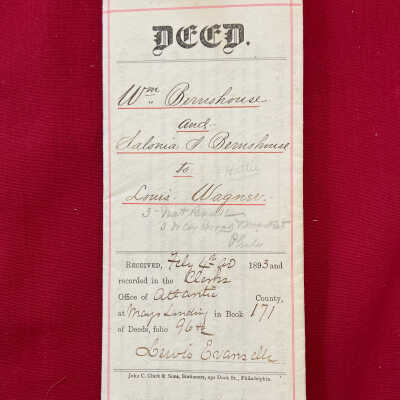 DEED.
Wm Bernshouse
and
Salonia F Bernshouse
Hattie
to
Louis Wagner
3 Nat Bank
Phila
RECEIVED, Feby 4th 1893 and
recorded in the Clerks
Office of Atlantic County,
at Mays Landing in Book 171
of Deeds, folio 96 &c
Lewis Evans Clk
John C. Clark & Sons, Stationers, 230 Dock St., Philadelphia.